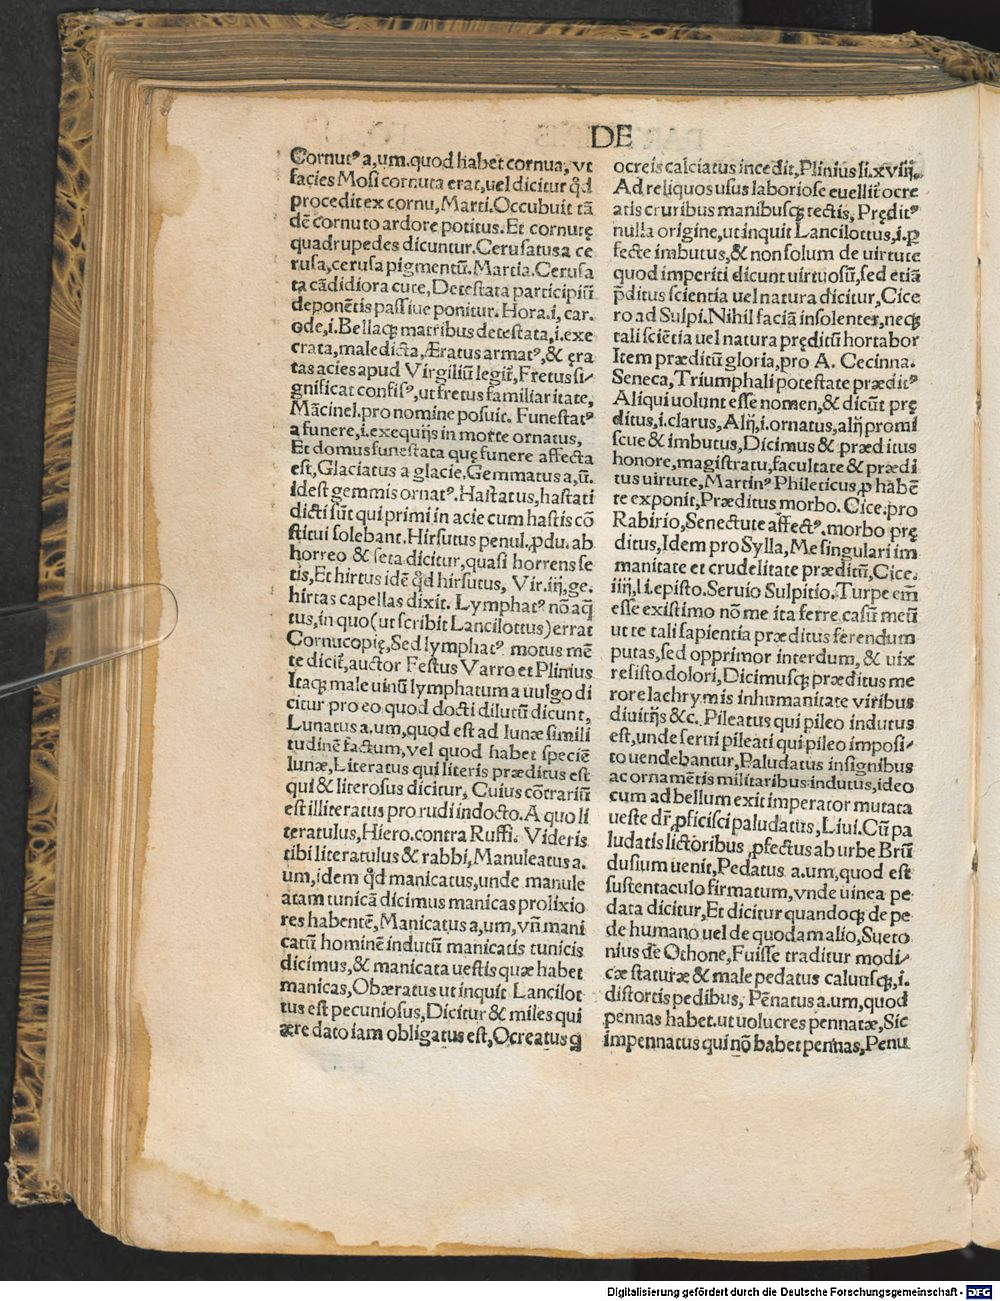 DE
Cornutꝰ a,um.quod habet cornua, vt
facies Mosi cornuta erat,uel dicitur q̃d
procedit ex cornu, Marti.Occubuit tã
dẽ cornuto ardore potitus. Et cornutę
quadrupedes dicuntur.Cerusatus a ce
rusa,cerusa pigmentũ. Martia.Cerusa
ta cãdidiora cute, Detestata participiũ
deponẽtis passiue ponitur. Hora.i, car.
ode,i.Bellaqꝫ matribus detestata,i.exe
crata,maledicta, Æratus armatꝰ,& ęra
tas acies apud Virgiliũ legit̃, Fretus si⸗
gnificat confisꝰ,ut fretus familiaritate,
Mãcinel.pro nomine posuit. Funestatꝰ
a funere,i.exequijs in morte ornatus,
Et domus funestata quę funere affecta
est, Glaciatus a glacie, Gemmatus a,ũ.
idest gemmis ornatꝰ. Hastatus, hastati
dicti sũt qui primi in acie cum hastis cõ
stitui solebant. Hirsutus penul.,pdu.ab
horreo & seta dicitur, quasi horrens se
tis, Et hirtus idẽ q̃d hirsutus, Vir.iij,ge.
hirtas capellas dixit. Lymphatꝰ nõ aq̃
tus,in quo(ut scribit Lancilottus)errat
Cornucopię, Sed lymphatꝰ motus mẽ
te dicit̃,auctor Festus Varro et Plinius
Itaqꝫ male uinũ lymphatum a uulgo di
citur pro eo quod docti dilutũ dicunt,
Lunatus a.um,quod est ad lunæ simili
tudinẽ factum, vel quod habet speciẽ
lunæ, Literatus qui literis præditus est
qui & literosus dicitur, Cuius cõtrariũ
est illiteratus pro rudi indocto. A quo li
teratulus, Hiero.contra Ruffi. Videris
tibi literatulus & rabbi, Manuleatus a.
um,idem q̃d manicatus,unde manule
atam tunicã dicimus manicas prolixio
res habentẽ, Manicatus a,um,vñ mani
catũ hominẽ indutũ manicatis tunicis
dicimus,& manicata uestis quæ habet
manicas, Obæratus ut inquit Lancilot
tus est pecuniosus, Dicitur & miles qui
ære dato iam obligatus est, Ocreatus q̃
ocreis calciatus incedit, Plinius li.xviij.
Ad reliquos usus laboriose euellit̃ ocre
atis cruribus manibusqꝫ tectis, Pręditꝰ
nulla origine,ut inquit Lancilottus,i.ꝑ
fecte imbutus,& non solum de uirtute
quod imperiti dicunt uirtuosũ,sed etiã
p̃ditus scientia uel natura dicitur, Cice
ro ad Sulpi.Nihil faciã insolenter,neqꝫ
tali sciẽtia uel natura pręditũ hortabor
Item præditũ gloria,pro A. Cecinna.
Seneca, Triumphali potestate præditꝰ
Aliqui uolunt esse nomen,& dicũt prę
ditus,i.clarus, Alij,i.ornatus,alij promi
scue & imbutus, Dicimus & præditus
honore,magistratu,facultate & prædi
tus uirtute, Martinꝰ Phileticus,ꝓ habẽ
te exponit, Præditus morbo. Cice.pro
Rabirio, Senectute affectꝰ.morbo prę
ditus, Idem pro Sylla, Me singulari im
manitate et crudelitate præditũ, Cice.
iiij,li.episto.Seruio Sulpitio. Turpe em̃
esse existimo nõ me ita ferre casũ meũ
ut te tali sapientia præditus ferendum
putas,sed opprimor interdum, & uix
resisto dolori, Dicimusqꝫ præditus me
rore lachrymis inhumanitate viribus
diuitijs &c. Pileatus qui pileo indutus
est,unde serui pileati qui pileo imposi⸗
to uendebantur, Paludatus insignibus
ac ornamẽtis militaribus indutus,ideo
cum ad bellum exit imperator mutata
ueste dr̃,ꝓficisci paludatus, Liui. Cũ pa
ludatis lictoribus ,ꝓfectus ab urbe Brũ
dusium uenit, Pedatus a.um,quod est
sustentaculo firmatum,vnde uinea pe
data dicitur, Et dicitur quandoqꝫ de pe
de humano uel de quodam alio, Sueto
nius de Othone, Fuisse traditur modi⸗
cæ staturæ & male pedatus caluusqꝫ,i.
distortis pedibus, Pẽnatus a.um,quod
pennas habet.ut uolucres pennatæ, Sic
impennatus qui nõ habet pennas, Penu
Digitalisierung gefördert durch die Deutsche Forschungsgemeinschaft - DFG